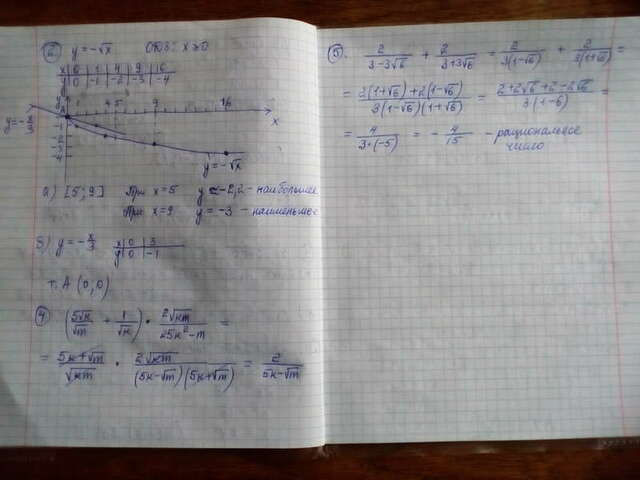 ② y = -√x ОДЗ: x ≥ 0
x | 0 | 1 | 4 | 9 | 16
y | 0 | -1 | -2 | -3 | -4
y = -x/3
1 4 5 9 16 x
-1
-2
-3
-4
y = -√x
а) [5; 9] При x = 5 y ≈ -2,2 - наибольшее
При x = 9 y = -3 - наименьшее
в) y = -x/3 x | 0 | 3
y | 0 | -1
т. A (0; 0)
④ (5√к/√m + 1/√к) · 2√кm/(25к² - m) =
= (5к + √m)/√кm · 2√кm/((5к - √m)(5к + √m)) = 2/(5к - √m)
⑤. 2/(3 - 3√6) + 2/(3 + 3√6) = 2/(3(1 - √6)) + 2/(3(1 + √6)) =
= (2(1 + √6) + 2(1 - √6))/(3(1 - √6)(1 + √6)) = (2 + 2√6 + 2 - 2√6)/(3(1 - 6)) =
= 4/(3·(-5)) = -4/15 - рациональное
число